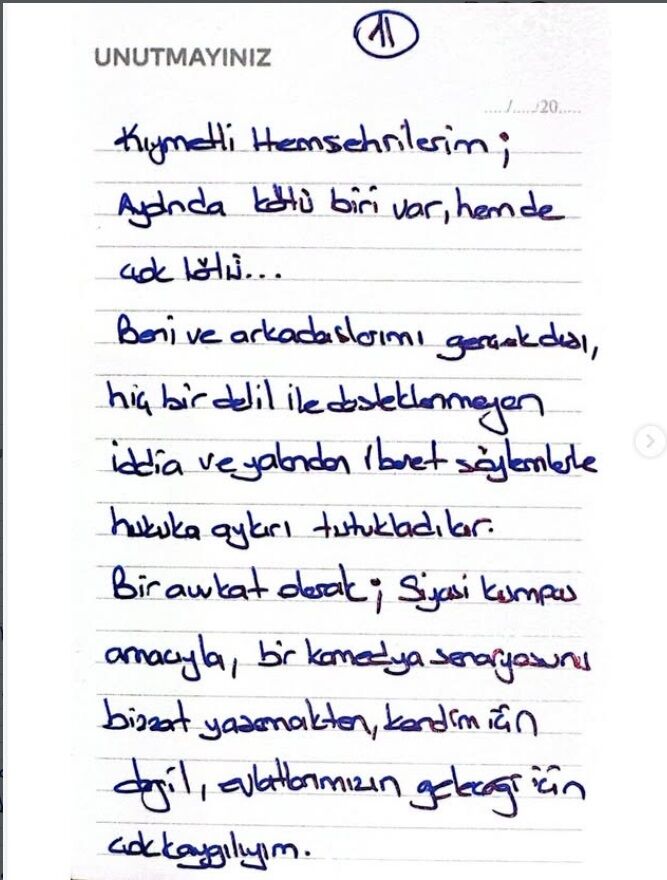 11
UNUTMAYINIZ
..../...../20.....
Kıymetli Hemşehrilerim;
Aydında kötü biri var, hem de
çok kötü...
Beni ve arkadaşlarımı gerçek dışı,
hiç bir delil ile desteklenmeyen
iddia ve yalandan ibaret söylemlerle
hukuka aykırı tutukladılar.
Bir avukat olarak; Siyasi kumpas
amacıyla, bir komedya senaryosunu
bizzat yaşamaktan, kendim için
değil, evlatlarımızın geleceği için
çok kaygılıyım.